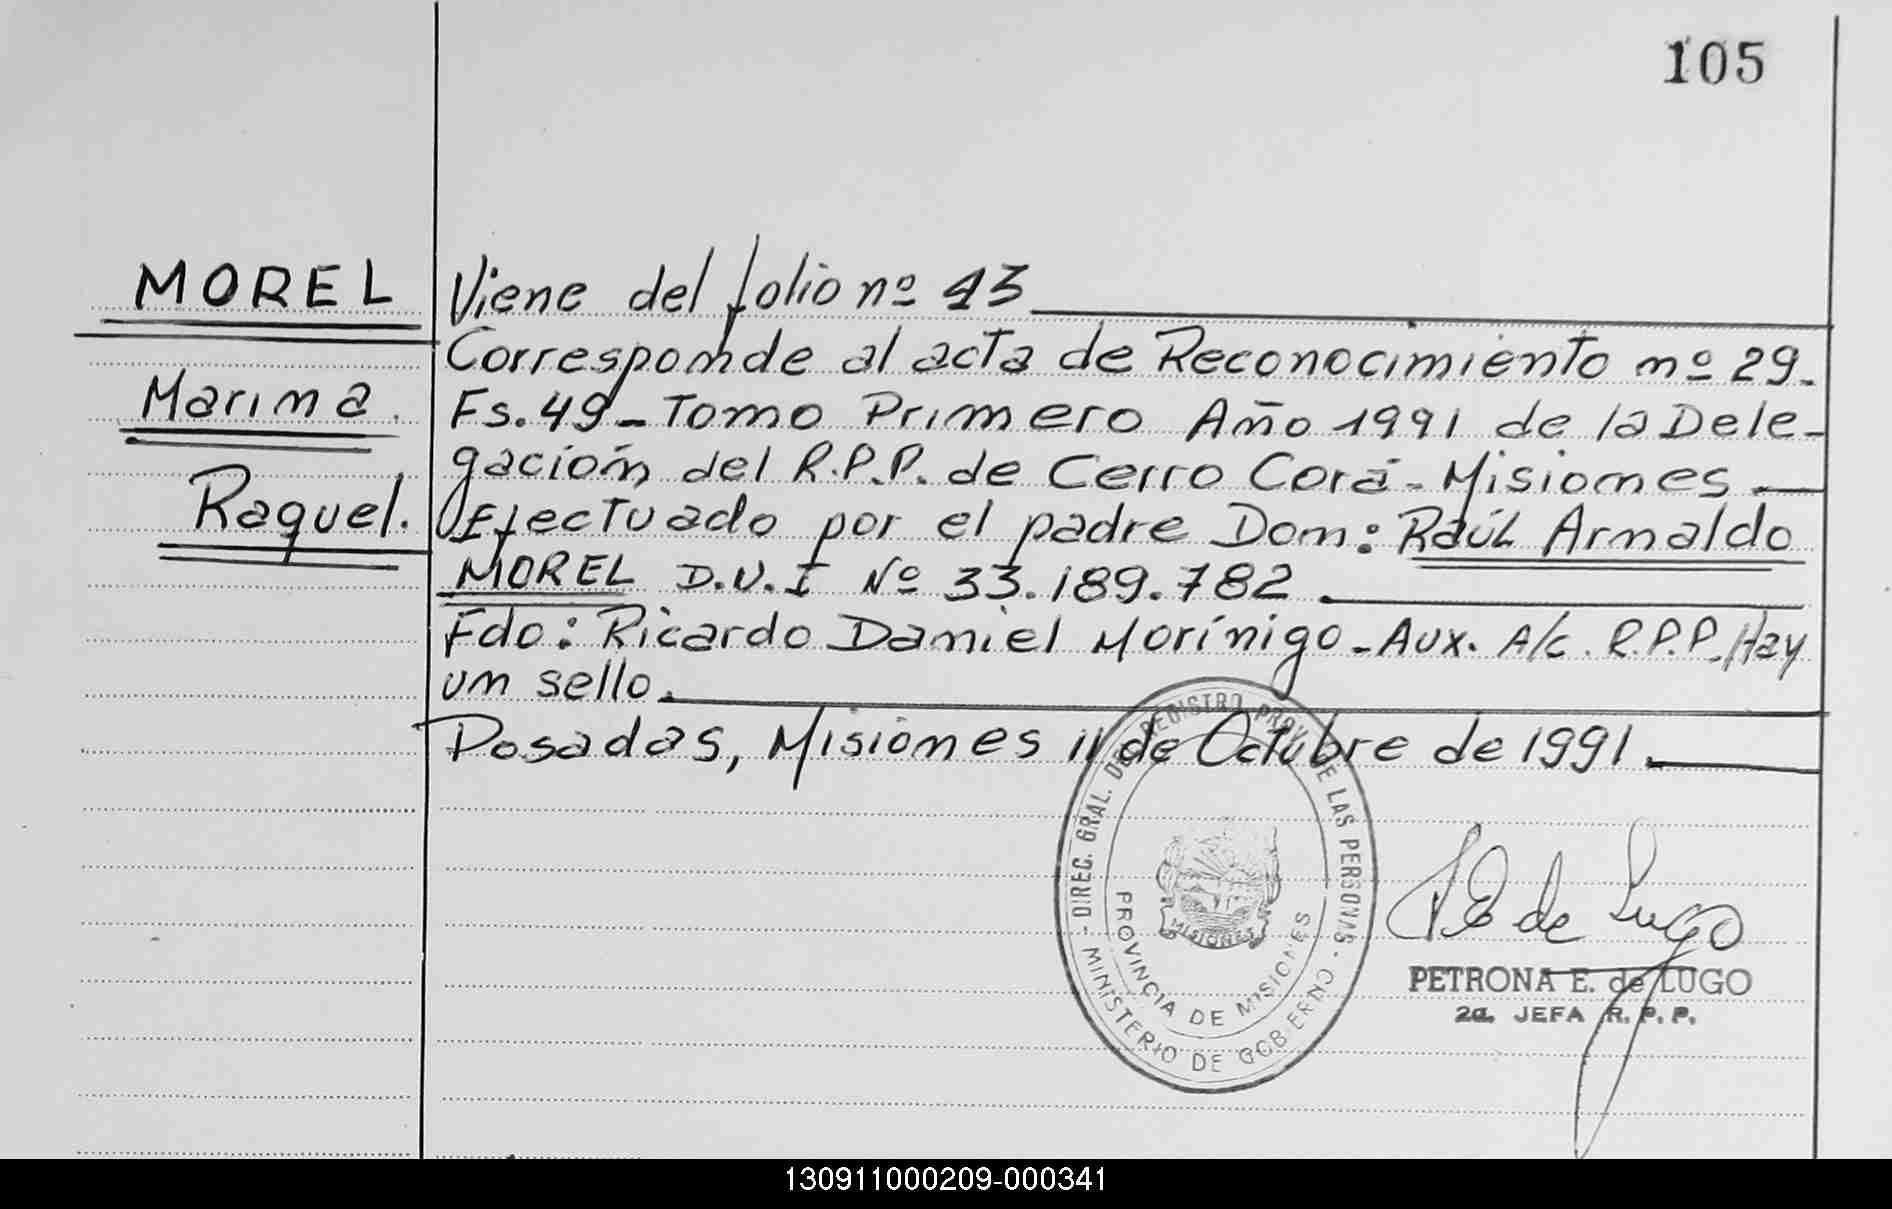 105
MOREL
Marina
Raquel.
Viene del folio nº 43
Corresponde al acta de Reconocimiento nº 29.
Fs. 49 - Tomo Primero Año 1991 de la Dele-
gación del R.P.P. de Cerro Corá - Misiones
Efectuado por el padre Don: Raúl Arnaldo
MOREL D.N.I Nº 33.189.782.
Fdo: Ricardo Daniel Morínigo - Aux. A/c. R.P.P. Hay
un sello.
Posadas, Misiones 11 de Octubre de 1991.
- DIREC. GRAL. DEL REGISTRO PROV. DE LAS PERSONAS -
MINISTERIO DE GOBIERNO
PROVINCIA DE MISIONES
MISIONES
P E de Lugo
PETRONA E. de LUGO
2a. JEFA R. P. P.
130911000209-000341